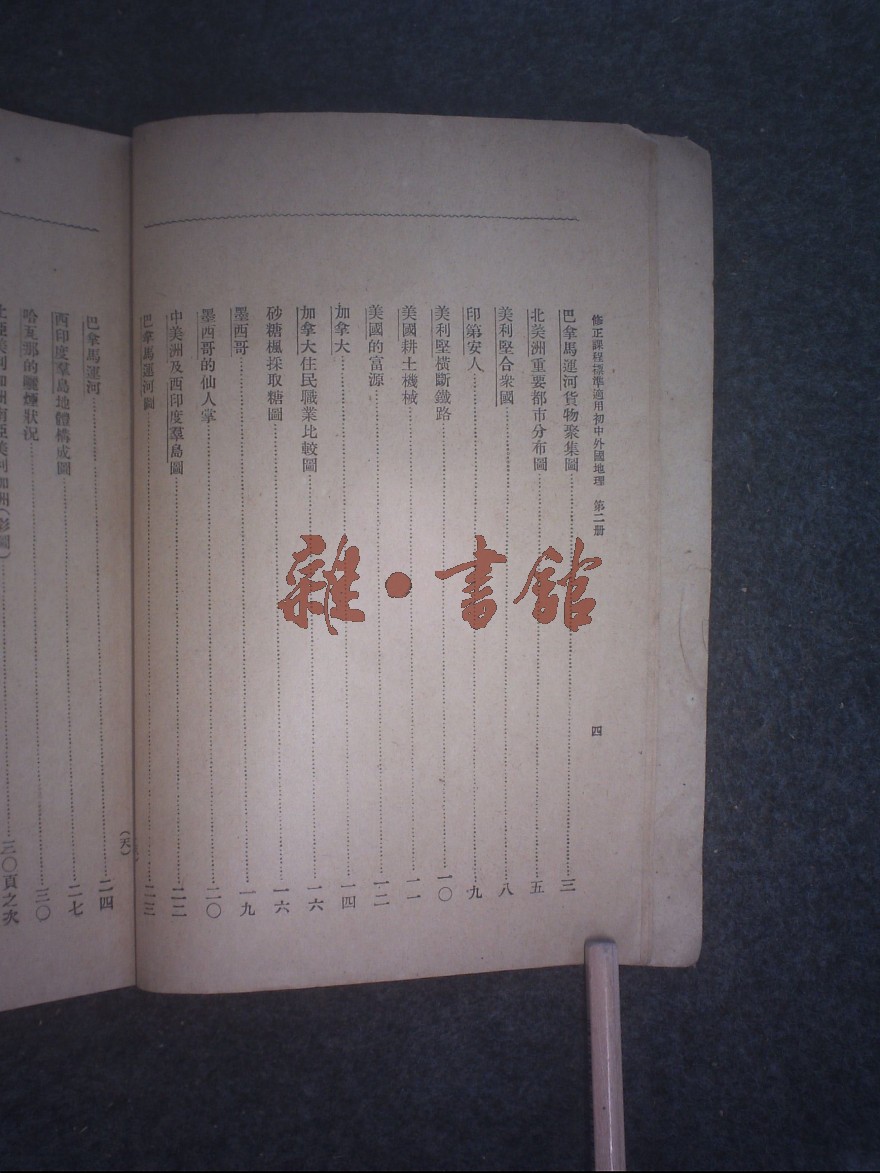 修正課程標準適用初中外國地理 第二册
四
巴拿馬運河貨物聚集圖…三
北美洲重要都市分布圖…五
美利堅合衆國…八
印第安人…九
美利堅橫斷鐵路…一〇
美國耕土機械…一一
美國的富源…一二
加拿大…一四
加拿大住民職業比較圖…一六
砂糖楓採取糖圖…一六
墨西哥…一九
墨西哥的仙人掌…二〇
中美洲及西印度羣島圖…二二
巴拿馬運河圖…二三
巴拿馬運河…二四
西印度羣島地體構成圖…二七
哈瓦那的曬煙狀況…三〇
北亞美利加洲南亞美利加洲(彩圖)…三〇頁之次
雜·書館